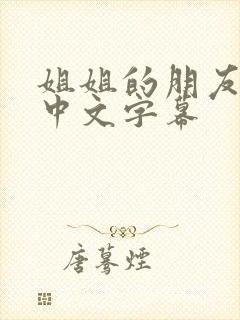 姐姐的朋友
中文字幕
唐骞煙